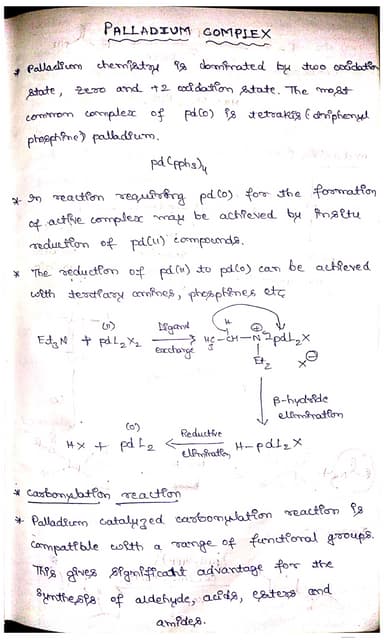 PALLADIUM COMPLEX
* Palladium chemistry is dominated by two oxidation
state, zero and +2 oxidation state. The most
common complex of pd(0) is tetrakis (triphenyl
phosphine) palladium.
pd(pph3)4
* In reaction requiring pd(0) for the formation
of active complex may be achieved by insitu
reduction of pd(II) compounds.
* The reduction of pd(II) to pd(0) can be achieved
with tertiary amines, phosphines etc
Et3N + pdL2X2 (II) Ligand exchange H2C-CH-N-pdL2X
H
Et2 X⊖
β-hydride
elimination
HX + pdL2 (0) Reductive elimination H-pdL2X
* Carbonylation reaction
* Palladium catalyzed carbonylation reaction is
compatible with a range of functional groups.
This gives significant advantage for the
synthesis of aldehyde, acids, esters and
amides.